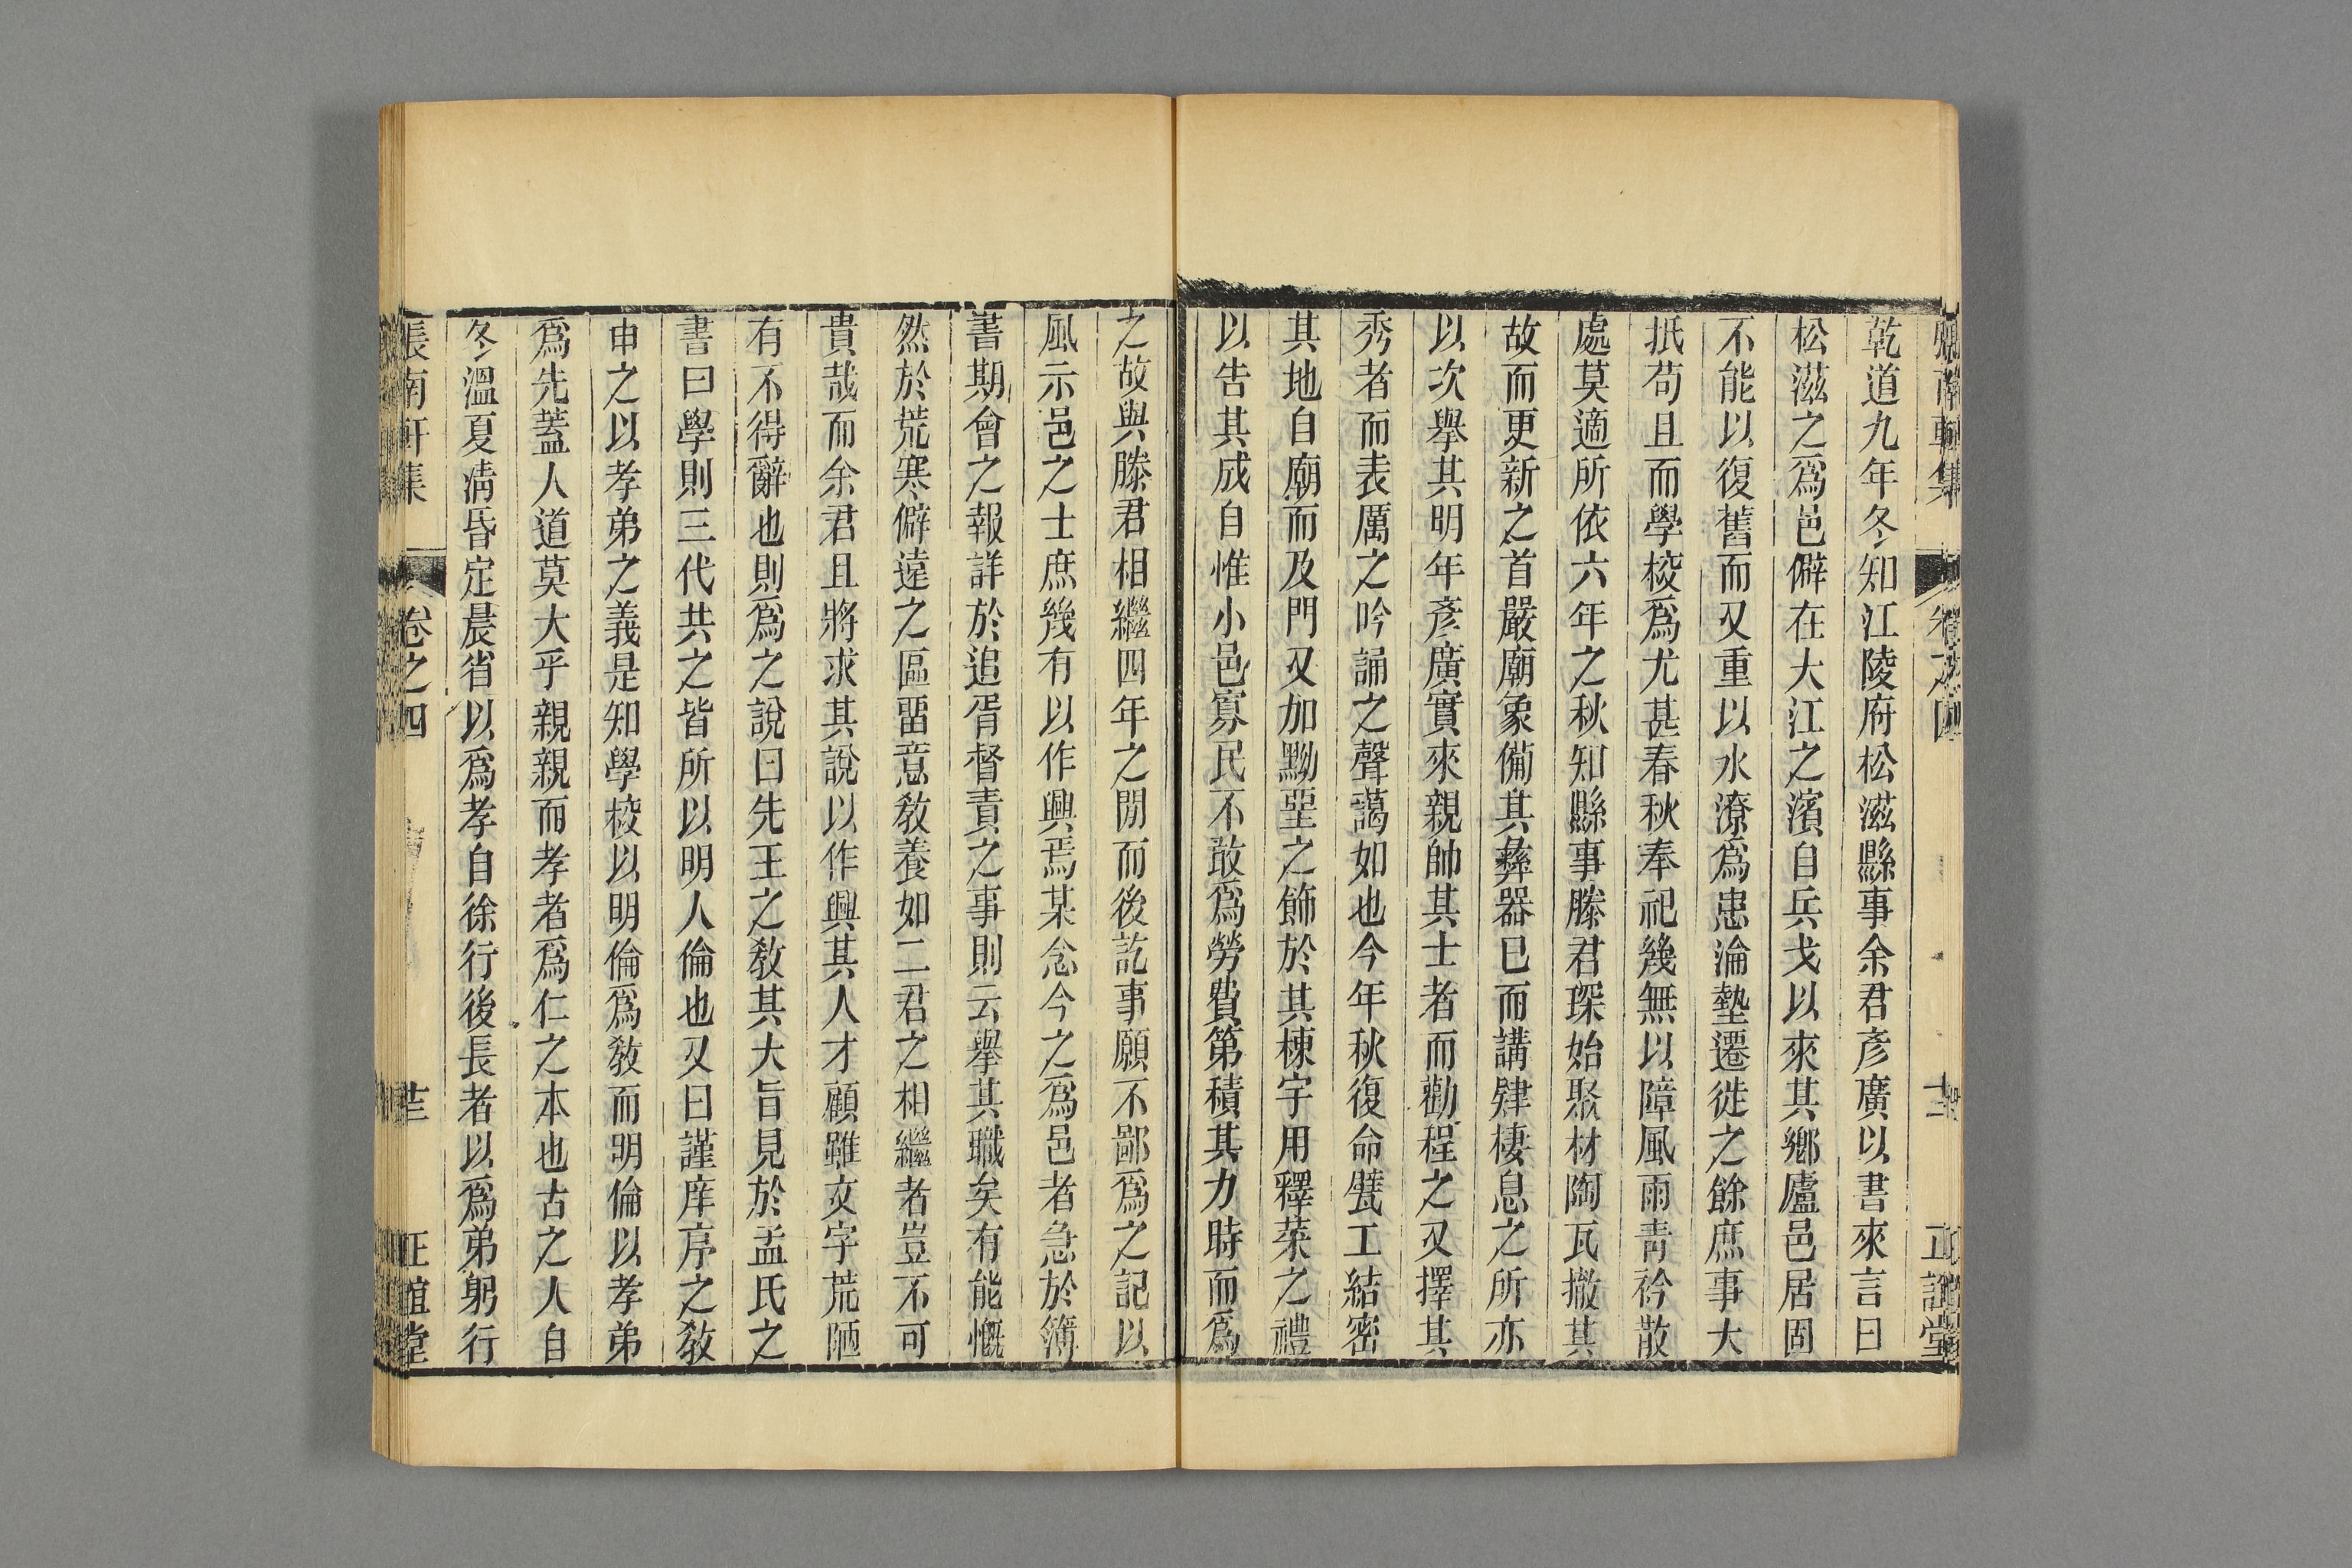 乾道九年冬知江陵府松滋縣事余君彥廣以書來言曰
松滋之爲邑僻在大江之濱自兵戈以來其鄉廬邑居固
不能以復舊而又重以水潦爲患淪墊遷徙之餘庶事大
抵苟且而學校爲尤甚春秋奉祀幾無以障風雨靑衿散
處莫適所依六年之秋知縣事滕君琛始聚材陶瓦撤其
故而更新之首嚴廟象備其彝器已而講肄棲息之所亦
以次舉其明年彥廣實來親帥其士者而勸程之又擇其
秀者而表厲之吟誦之聲藹如也今年秋復命甓工結密
其地自廟而及門又加黝堊之飾於其棟宇用釋菜之禮
以告其成自惟小邑寡民不敢爲勞費第積其力時而爲
之故與滕君相繼四年之閒而後訖事願不鄙爲之記以
風示邑之士庶幾有以作興焉某念今之爲邑者急於簿
書期會之報詳於追胥督責之事則云舉其職矣有能慨
然於荒寒僻遠之區留意敎養如二君之相繼者豈不可
貴哉而余君且將求其說以作興其人才顧雖文字荒陋
有不得辭也則爲之說曰先王之敎其大旨見於孟氏之
書曰學則三代共之皆所以明人倫也又曰謹庠序之敎
申之以孝弟之義是知學校以明倫爲敎而明倫以孝弟
爲先蓋人道莫大乎親親而孝者爲仁之本也古之人自
冬溫夏凊昏定晨省以爲孝自徐行後長者以爲弟躬行
張南軒集 卷之四 正誼堂